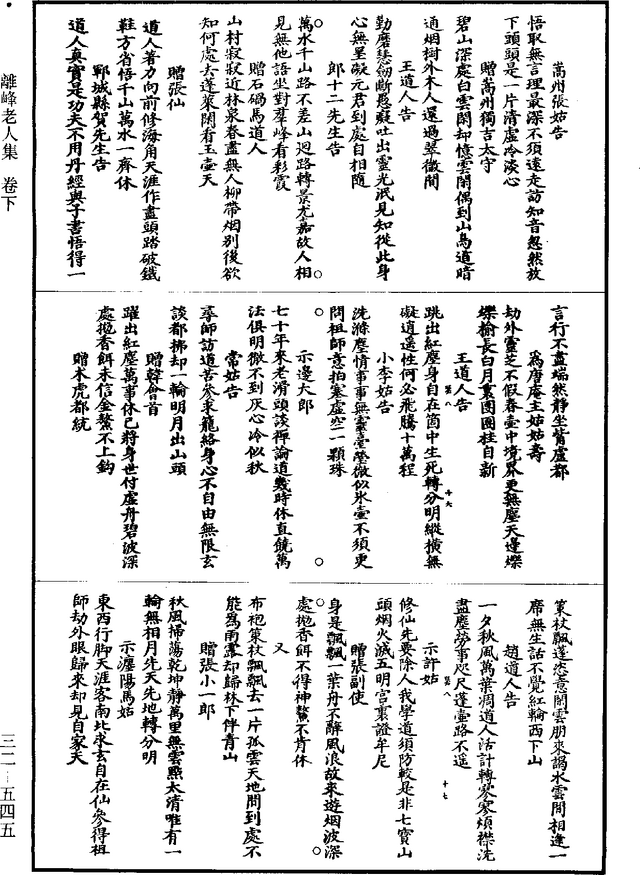 嵩州張姑告
悟取無言理最深不須遠走訪知音忽然放
下頭頭是一片清虛冷淡心
贈嵩州獨吉太守
碧山深處白雲閑却憶雲閑偶到山鳥道暗
通烟樹外木人還過翠微間
王道人告
勤磨慧劒斷愚癡吐出靈光泯見知從此身
心無罣礙元君到處自相隨
郎十二先生告
萬水千山路不差山廻路轉景尤嘉故人相
見無他語坐對羣峰看彩霞
贈石碢馬道人
山村寂寂近林泉春盡無人柳帶烟別後欲
知何處去蓬萊閑看玉壺天
贈張仙
道人者力向前修海角天涯作盡頭踏破鐵
鞋方省悟千山萬水一齊休
鄆城縣賀先生告
道人真實是功夫不用丹經與子書悟得一
言行不盡端然靜坐觜盧都
為唐庵主姑姑壽
劫外靈芝不假春壺中境界更無塵天邊爍
爍榆長白月裏團團桂自新
王道人告
跳出紅塵身自在箇中生死轉分明縱橫無
十六
礙逍遙性何必飛騰十萬程
小李姑告
洗滌塵情事事無靈臺瑩徹似氷壺不須更
問祖師意拍塞虛空一顆珠
示邊大郎
七十年來老滑頭談禪論道幾時休直饒萬
法俱明徹不到灰心冷似秋
常姑告
尋師訪道苦參求籠絡身心不自由無限玄
談都拂却一輪明月出山頭
贈韓會首
躍出紅塵萬事休已將身世付虛舟碧波深
處抛香餌未信金鰲不上鈎
贈术虎都統
策杖飄蓬恣意閑雲朋來謁水雲間相逢一
席無生話不覺紅輪西下山
趙道人告
一夕秋風萬葉凋道人活計轉寥寥煩襟洗
盡塵勞事咫尺蓬壺路不遙
十七
示許姑
修仙先要除人我學道須防較是非七寶山
頭烟火滅五明宮裏證牟尼
贈張副使
身是飄飄一葉舟不辭風浪故來遊烟波深
處抛香餌不得神鰲不肯休
又
布袍策杖飄飄去一片孤雲天地間到處不
能為雨露却歸林下伴青山
贈張小一郎
秋風掃蕩乾坤靜萬里無雲點太清唯有一
輪無相月先天先地轉分明
示灋陽馬姑
東西行脚天涯客南北求玄自在仙參得祖
師劫外眼歸來却見自家天
離峰老人集 卷下
三二—五四五